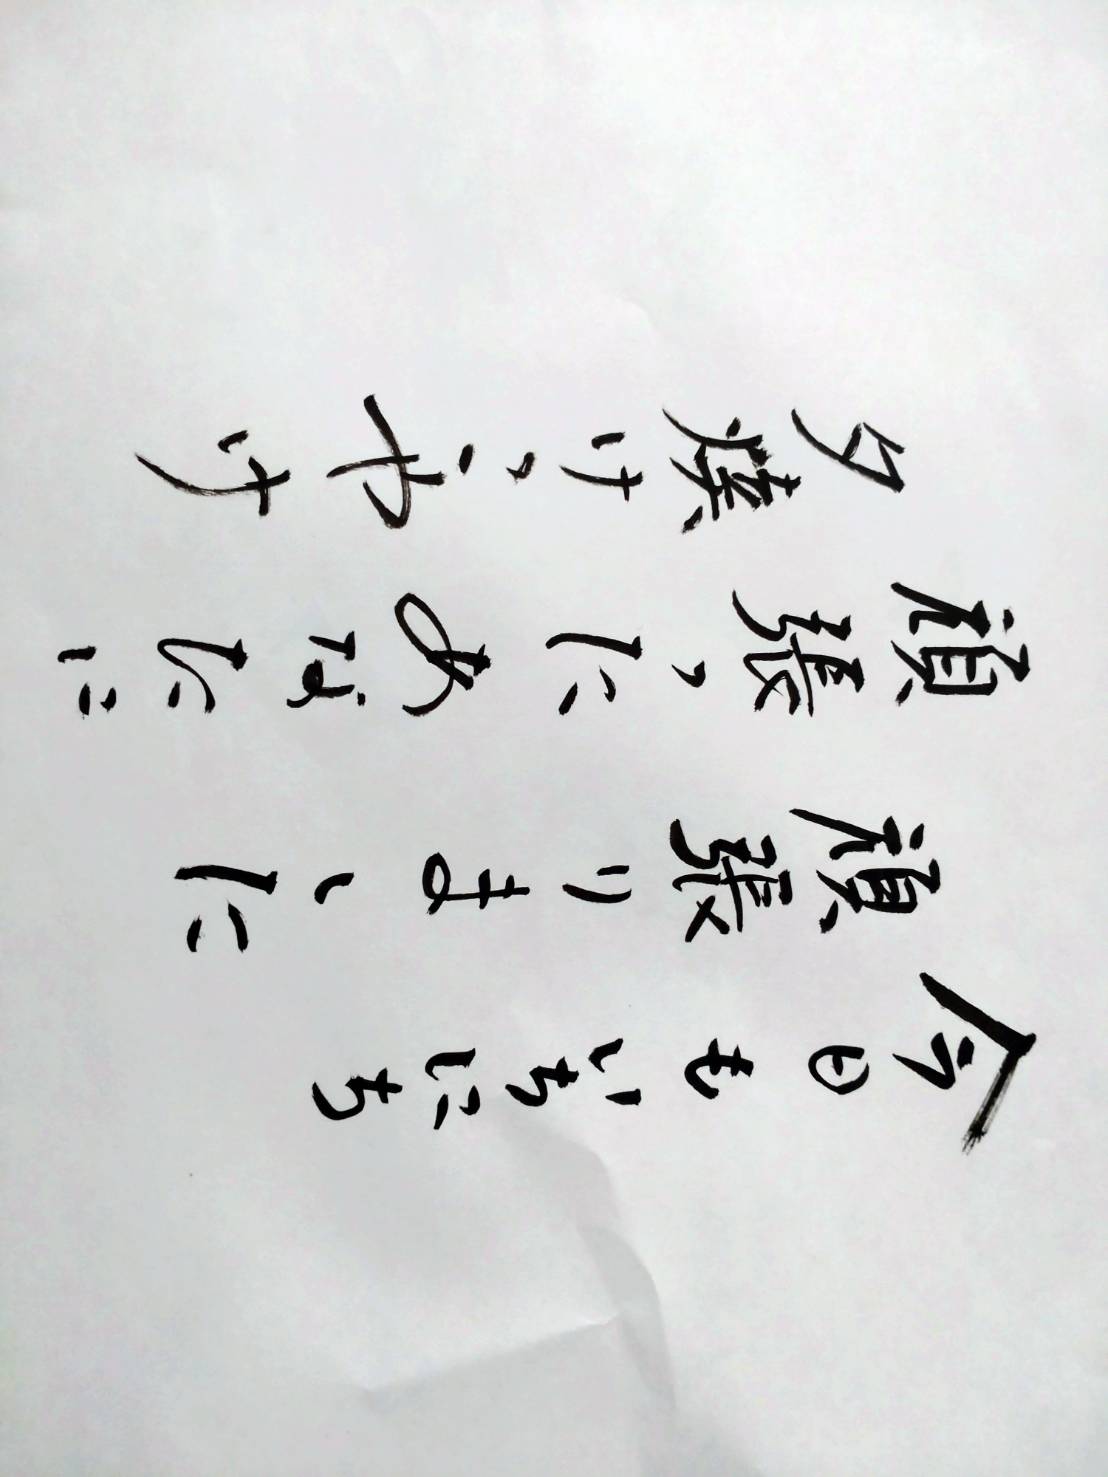 今日もいちにち
頑張りました
頑張ったあなたに
夕焼けこやけ